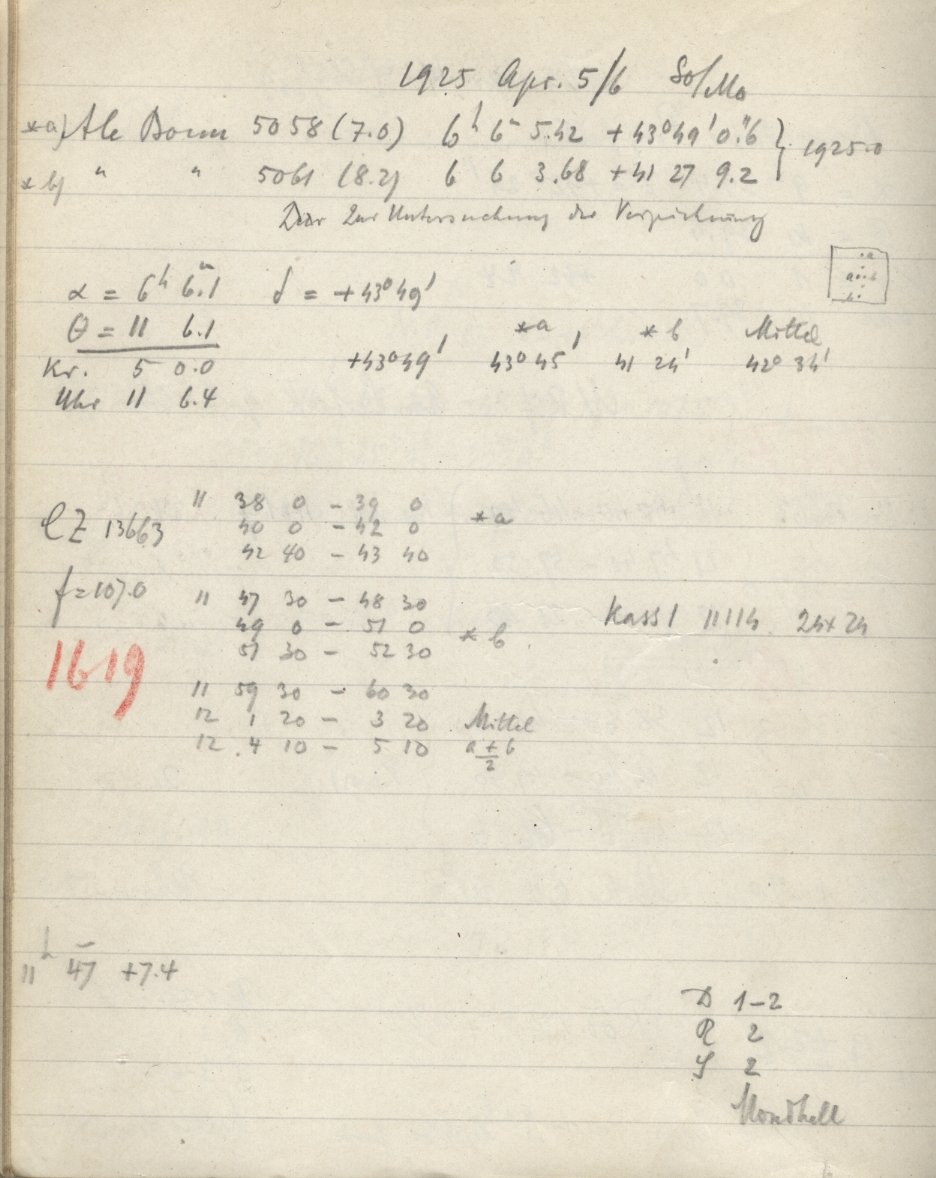 1925 Apr. 5/6 So/Mo
*a) AG Bonn 5058 (7.0) 6h 6m 5.42 +43° 49' 0."6 } 1925.0
*b) " " 5061 (8.2) 6 6 3.68 +41 27 9.2
Zur Untersuchung der Verzeichnung
α = 6h 6m.1 δ = +43° 49'
θ = 11 6.1 *a *b Mittel
Kr. 5 0.0 +43° 49' 43° 45' 41 24' 42° 34'
Uhr 11 6.4
a
a+b
b
11 38 0 – 39 0
CZ 13663 40 0 – 42 0 *a
42 40 – 43 40
f=107.0 11 47 30 – 48 30
49 0 – 51 0 *b Kass 1 11114 24×24
51 30 – 52 30
1619
11 59 30 – 60 30
12 1 20 – 3 20 Mittel
12 4 10 – 5 10 a+b/2
11h 47m +7.4
D 1–2
R 2
S 2
Mondhell